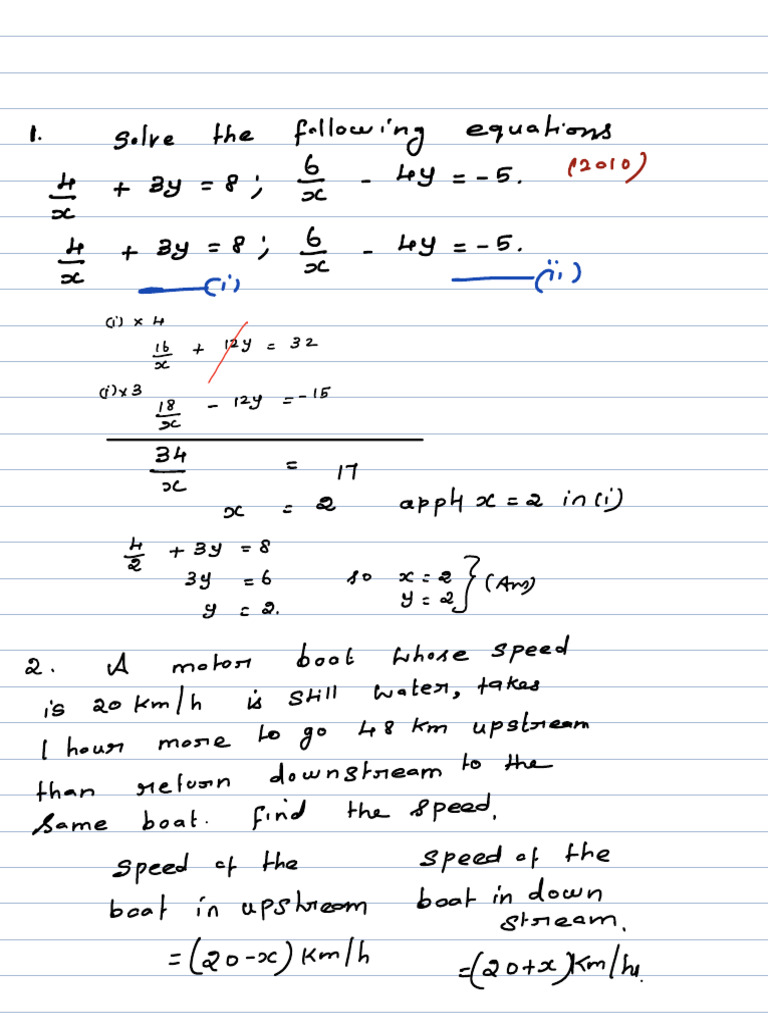 1. Solve the following equations
4/x + 3y = 8 ; 6/x - 4y = -5. (2010)
4/x + 3y = 8 ; 6/x - 4y = -5.
(i) (ii)
(i) x 4
16/x + 12y = 32
(i) x 3
18/x - 12y = -15
34/x = 17
x = 2 apply x = 2 in (i)
4/2 + 3y = 8
3y = 6 so x = 2
y = 2. y = 2 } (Ans)
2. A motor boat whose speed
is 20 km/h is still water, takes
1 hour more to go 48 km upstream
than return downstream to the
same boat. find the speed.
speed of the speed of the
boat in upstream boat in down
stream.
= (20-x) km/h = (20+x) km/h.